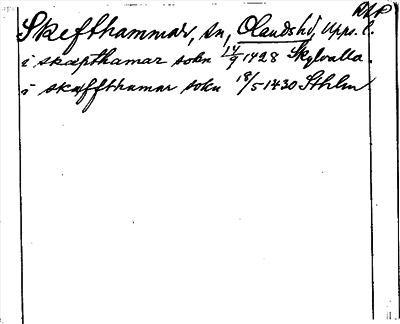 RAP
Skefthammar, sn, Olandshd, Upps. l.
i skæpthamar sokn 14/9 1428 Skylvalla.
i skæffthamar sokn 18/5 1430 Sthlm